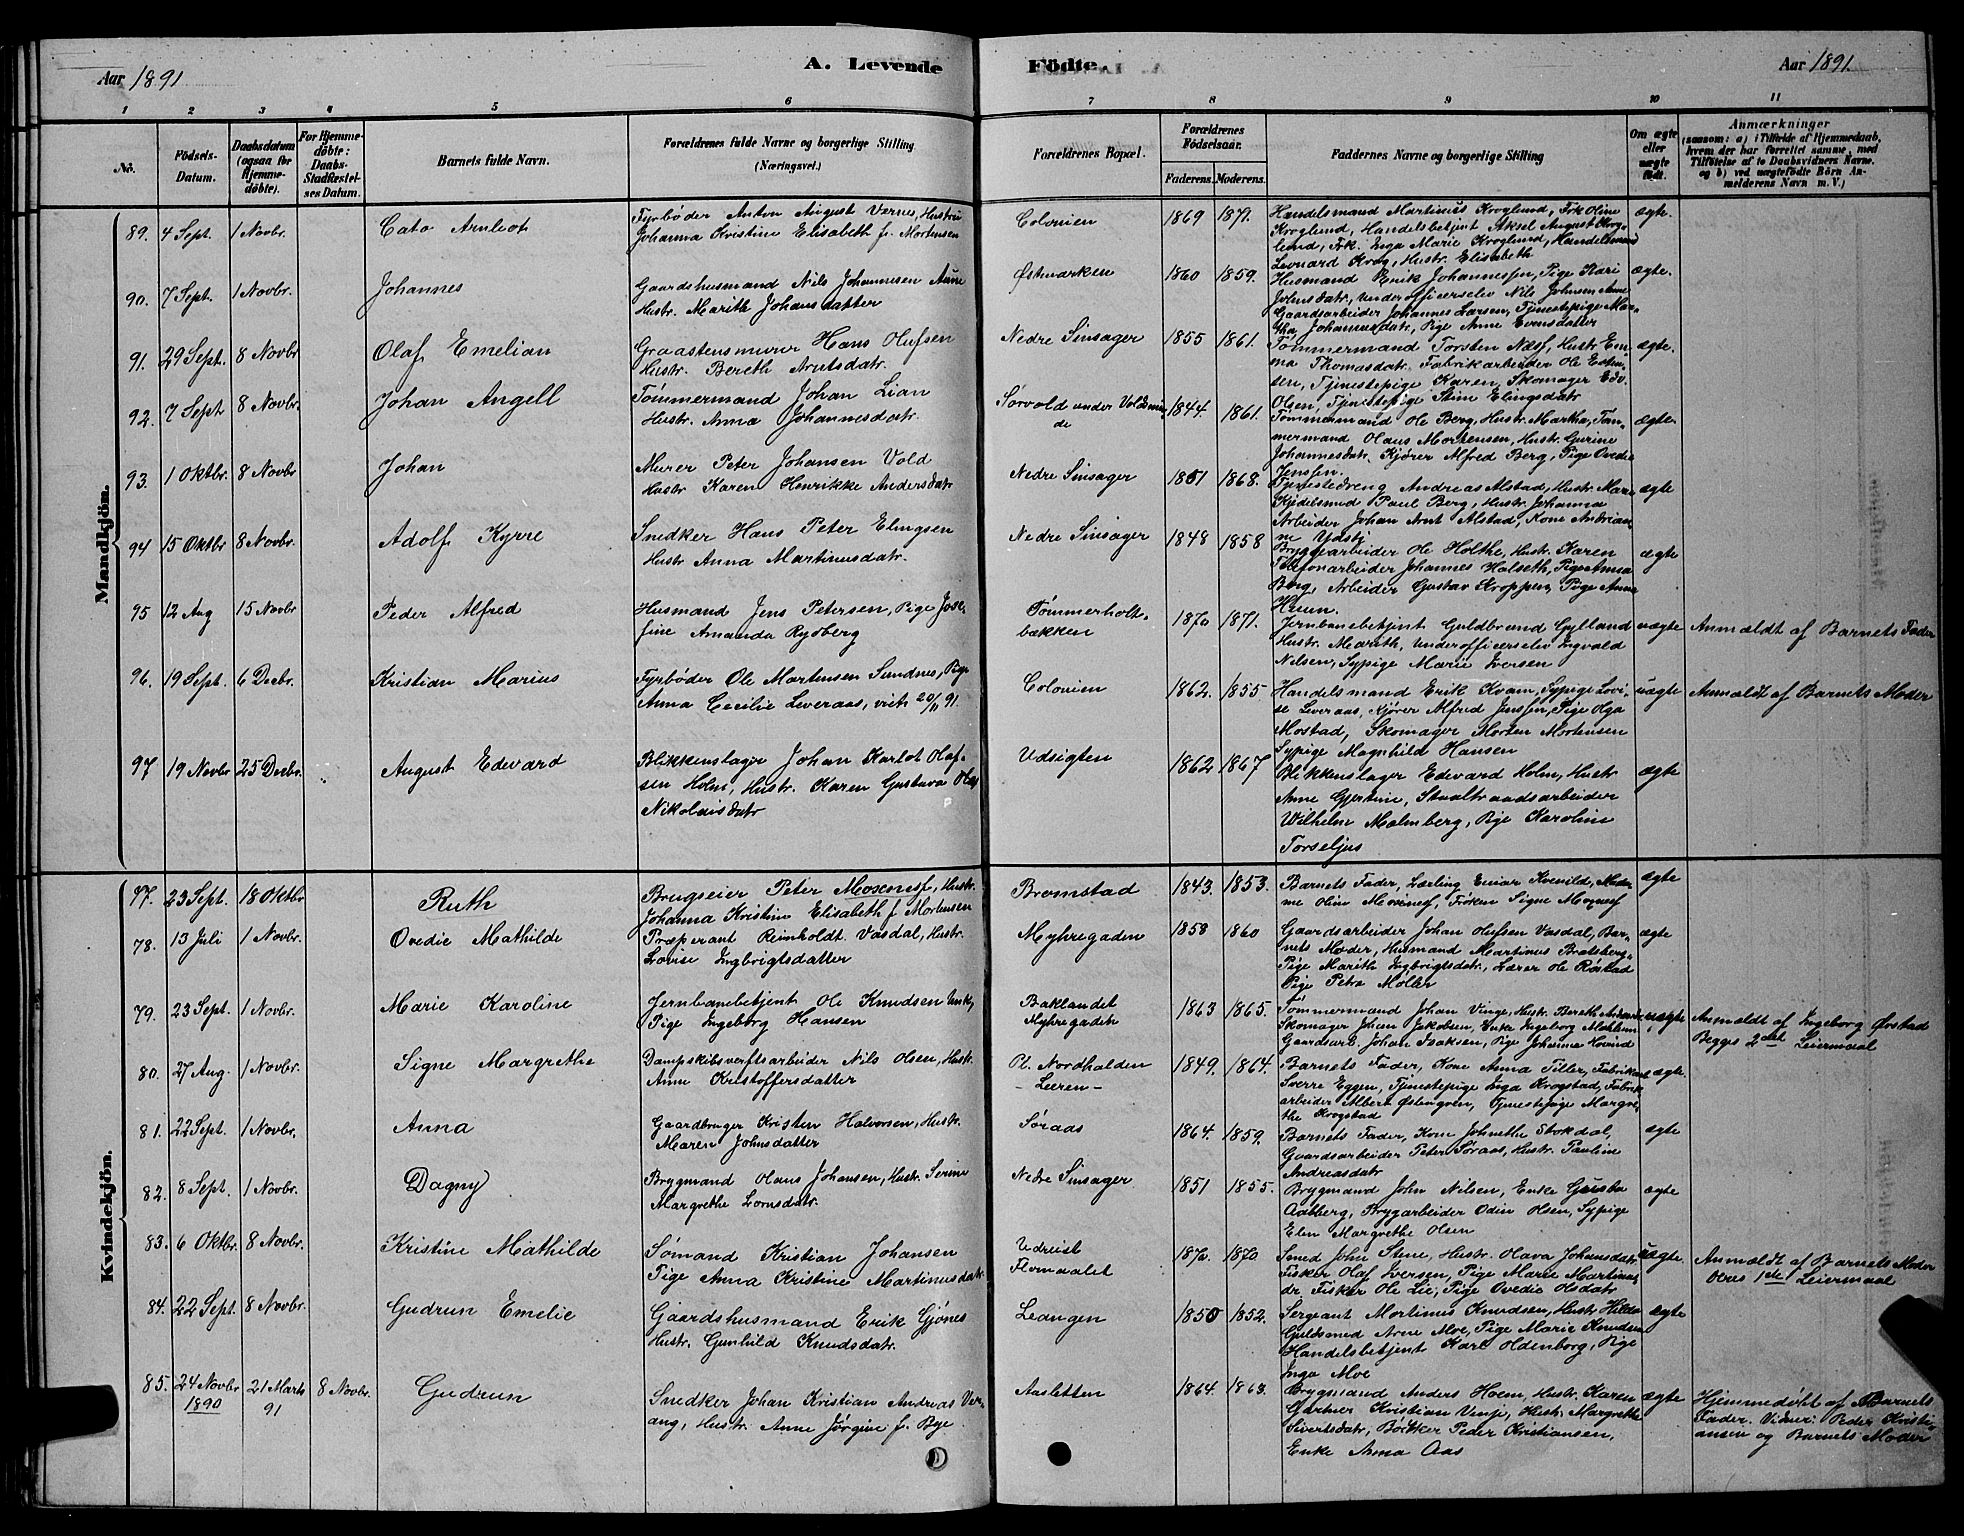 Aar 1891
A. Levende
Födte.
Aar 1891.
1 2 3 4 5 6 7 8 9 10 11
No.
Födsels-
Datum.
Daabsdatum
(ogsaa for
Hjemme-
döbte).
For Hjemme-
döbte:
Daabs-
Stadfæstel-
ses Datum.
Barnets fulde Navn.
Forældrenes fulde Navne og borgerlige Stilling
(Næringsvei.)
Forældrenes Bopæl.
Forældrenes
Födselsaar.
Faderens. Moderens.
Faddernes Navne og borgerlige Stilling
Om ægte
eller
uægte
födt.
Anmærkninger
(saasom: a) i Tilfælde af Hjemmedaab,
hvem der har forrettet samme, med
Tilföielse af to Daabsvidners Navne,
og b) ved uægtefödte Börn An-
melderens Navn m. V.)
Mandkjön.
89. 4 Sept. 1 Novbr. Cato Arnleot
Fyrbøder Anton August Vernes, Hustru
Johanna Kristine Elisabeth f. Mortensen
Colonien 1869 1871.
Handelsmand Martinus Kroglund, Frk Oline
Kroglund, Handelsbetjent Aksel August Krog-
lund, Frk. Inga Marie Kroglund, Handelsmand
Leonard Krog, Hustr. Elisabeth
ægte.
90. 7 Sept. 1 Novbr. Johannes
Gaardshusmand Nils Johannesen Aune
Hustr. Marith Johansdatter
Østmarken 1860 1859.
Husmand Erik Johannessen, Pige Kari
Johnsdatr, Underofficerselev Nils Johnsen Aune
Gaardsarbeider Johannes Larsen, Tjenestepige Mar-
tha Johannesdatr, Pige Anne Evensdatter
ægte.
91. 29 Sept. 8 Novbr Olaf Emelian
Graastensmurer Hans Olufsen
Hustr. Bereth Arntsdatr.
Nedre Sinsager 1855 1861.
Tømmermand Torsten Næss, Hustr. Em-
ma Thomasdatr. Fabrikarbeider Ole Evens-
sen, Tjenestepige Karen, Skomager Edv.
Olsen, Tjenestepige Stine Elingsdatr
ægte.
92. 7 Sept 8 Novbr. Johan Angell
Tømmermand Johan Lian
Hustr. Anna Johannesdatr.
Sørvold under Voldsmin-
de 1844. 1861.
Tømmermand Ole Berg, Hustr. Martha, Tøm-
mermand Olaus Mortensen, Hustr. Gurine
Johannesdatr. Kjører Alfred Berg, Pige Ovedie
Jenssen.
ægte.
93. 1 Oktbr. 8 Novbr Johan
Murer Peter Johansen Vold
Hustr Karen Henrikke Andersdatr
Nedre Sinsager 1861 1868.
Tjenestedreng Andreas Alstad, Hustr. Mar-
Kjedelsmed Paul Berg, Hustr. Johanna
Arbeider Johan Arnt Alstad, Kone Andrian-
ne Ydsti
ægte
94 15 Oktbr 8 Novbr. Adolf Kyrre
Snedker Hans Peter Elingsen
Hustr Anna Martinusdatr.
Nedre Sinsager 1848 1858
Bryggearbeider Ole Holthe, Hustr. Karen
Telefonarbeider Johannes Holseth, Pige Anna
Borg, Arbeider Gustav Kroppen, Pige Anna
Hrum.
ægte
95 12 Aug 15 Novbr. Peder Alfred
Husmand Jens Petersen, Pige Jose-
fine Amanda Rydberg
Tømmerholt-
bækken 1870 1871.
Jernbanebetjent Guldbrand Gylland
Hustr. Marith, Underofficerselev Ingvald
Nilsen, Sypige Marie Iversen
uægte Anmældt af Barnets Fader
96. 19 Sept. 6 Decbr. Kristian Marius
Fyrbøder Ole Martinsen Sundnes, Pige
Anna Cecilie Leveraas, vieth 20/11 91.
Colonien 1862. 1855
Handelsmand Erik Kvam, Sypige Lovi-
se Leveraas, Kjører Alfred Jenssen, Pige Olga
Mostad, Skomager Morten Mortensen
Sypige Magnhild Hansen
uægte Anmældt af Barnets Moder
97. 19 Novbr 25 Decbr. August Edevard
Blikkenslager Johan Karlot Olaf-
sen Holm, Hustr. Karen Gustava
Nikolaisdatr
Udsigten 1862 1867
Blikkenslager Edevard Holm, Hustr
Anne Gjertine, Staaltraadsarbeider
Wilhelm Malmberg, Pige Karoline
Torseljus
ægte
Kvindekjön.
77. 23 Sept. 18 Oktbr Ruth
Brugseier Peter Moxness, Hustr.
Johanna Kristine Elisabeth f Mortensen
Bromstad 1843. 1853.
Barnets Fader, Lærling Einar Kvenild, Mada-
me Oline Moxness, Frøken Signe Moxness
ægte
78. 13 Juli 1 Novbr. Ovedie Mathilde
Præperant Reinholdt Vasdal, Hustr.
Lovise Ingbrigtsdatter
Myhregaden 1858 1860
Gaardsarbeider Johan Olufsen Vasdal, Bar-
nets Moder, Husmand Martinus Bratsberg,
Pige Marith Ingbrigtsdatr, Lærer Ole Røstad
Pige Petra Møller
ægte
79. 23 Sept. 1 Novbr. Marie Karoline
Jernbanebetjent Ole Knudsen
Pige Ingeborg Hansen
Baklandet
Myhregaden 1863 1865.
Tømmermand Johan Vinge, Hustr. Bereth
Skomager Johan Jakobsen, Enke Ingeborg
Gaardsarb. Johan Isaksen, Pige Johanna Hovind
uægte Anmældt af Ingeborg Østad
Begges 2det Leiermaal
80. 27 Aug. 1 Novbr. Signe Margrethe
Dampskibsverftsarbeider Nils Olsen, Hustr.
Anne Kristoffersdatter
Pl. Nordhalden
- Leeren - 1849. 1864.
Barnets Fader, Kone Anna Tiller, Fabrikant
Sverre Eggen, Tjenestepige Inga Krogstad, Fabrik-
arbeider Albert Østengren, Tjenestepige Margre-
the Krogstad
ægte.
81. 22 Sept. 1 Novbr. Anna
Gaardbruger Kristen Halvorsen, Hustr.
Maren Johnsdatter
Søraas 1864. 1859.
Barnets Fader, Kone Johnethe Stokdal,
Gaardsarbeider Peter Søraas, Hustr. Pauline
Andreasdatr
ægte
82. 8 Sept. 1 Novbr. Dagny
Brygmand Olaus Johansen, Hustr Serine
Margrethe Lornsdatr.
Nedre Sinsager 1851 1855.
Brygmand John Nilsen, Enke Gusta
Aalberg, Brygarbeider Odin Olsen, Sypige
Elen Margrethe Olsen
ægte
83. 6 Oktbr. 8 Novbr. Kristine Mathilde
Sømand Kristian Johansen
Pige Anna Kristine Martinusdatr
Udreist
Ilomaalet 1870. 1870.
Smed John Stene, Hustr. Olava Johansdatr.
Fisker Olaf Iversen, Pige Marie Martinus-
dr. Fisker Ole Lie, Pige Ovedie Olsdatr
uægte. Anmældt af Barnets Moder
deres 1ste Leiermaal
84. 22 Sept. 8 Novbr. Gudrun Emelie
Gaardshusmand Erik Gjønes
Hustr. Gunhild Knudsdatr.
Leangen 1850 1852.
Sergeant Mortinus Knudsen, Hustr Hilda
Guldsmed Arne Moe, Pige Marie Knudsen
Handelsbetjent Karl Oldenborg, Pige
Inga Moe
ægte
85. 24 Novbr
1890 21 Marts
91 8 Novbr. Gudrun
Snedker Johan Kristian Andreas Ver-
ang, Hustr. Anne Jørgine f. Bye
Aasletten 1864. 1863.
Brygmand Anders Hoem, Hustr. Karen
Gartner Kristian Vinje, Hustr. Margrethe
Sivertsdatr, Bødker Peder Kristiansen,
Enke Anna Aas
ægte Hjemmedøbt af Barnets
Fader. Vidner: Peder Kristi-
ansen og Barnets Moder